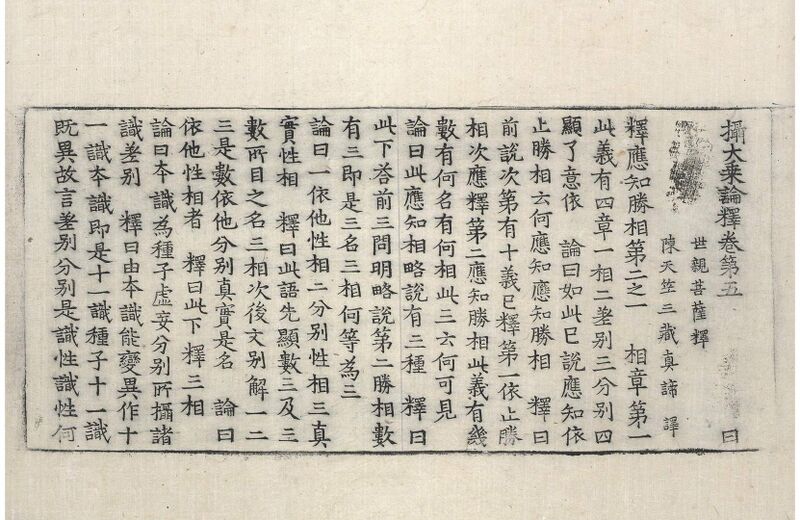 攝大乗論釋卷第五 曰
世親菩薩釋
陳天竺三藏真諦譯
釋應知勝相第二之一 相章第一
此義有四章一相二差别三分别四
顯了意依 論曰如此已說應知依
止勝相云何應知應知勝相 釋曰
前說次第有十義已釋第一依止勝
相次應釋第二應知勝相此義有幾
數有何名有何相此三云何可見
論曰此應知相略說有三種 釋曰
此下荅前三問明略說第二勝相數
有三即是三名三相何等為三
論曰一依他性相二分别性相三真
實性相 釋曰此語先顯數三及三
數所目之名三相次後文别解一二
三是數依他分别真實是名 論曰
依他性相者 釋曰此下釋三相
論曰本識為種子虛妄分别所攝諸
識差别 釋曰由本識能變異作十
一識本識即是十一識種子十一識
既異故言差别分别是識性識性何